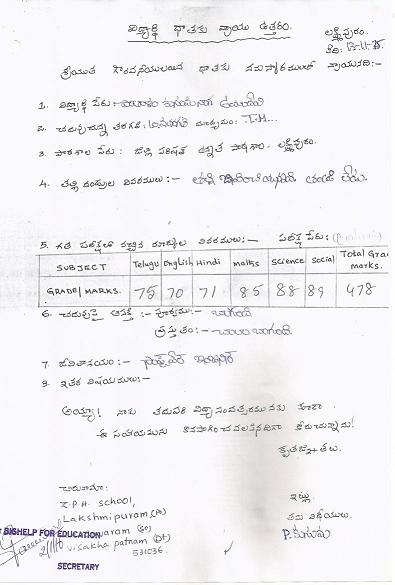 విద్యార్థి దాతకు వ్రాయు ఉత్తరం.
లక్ష్మీపురం.
తేది: 13-11-15.
శ్రీయుత గౌరవనీయులయిన దాతకు నమస్కారములతో వ్రాయునది:-
1. విద్యార్థి పేరు:-
2. చదువుచున్న తరగతి: మాధ్యమం: T.M...
3. పాఠశాల పేరు: జిల్లా పరిషత్ ఉన్నత పాఠశాల, లక్ష్మీపురం.
4. తల్లి దండ్రుల వివరములు:- తండ్రి లేడు.
5. గత పరీక్షలో వచ్చిన మార్కుల వివరములు:- పరీక్ష పేరు:
SUBJECT Telugu English Hindi maths science social Total Grad marks.
GRADE/MARKS. 75 70 71 85 88 89 478
6. చదువుపై ఆసక్తి :- పూర్వము:- బాగుంది
ప్రస్తుతం:- చాలా బాగుంది.
7. జీవితాశయం:-
8. ఇతర విషయములు:-
అయ్యా! నాకు తదుపరి విద్యాసంవత్సరమునకు కూడా
ఈ సహాయమును కొనసాగించవలసినదిగా కోరుచున్నాను!
కృతజ్ఞతలు.
చిరునామా:
Z.P.H. SCHOOL,
Lakshmipuram (P)
varam (so)
visakha patnam (Dt)
531036.
ఇట్లు
తమ విధేయులు.
P.
BIGHELP FOR EDUCATION
SECRETARY